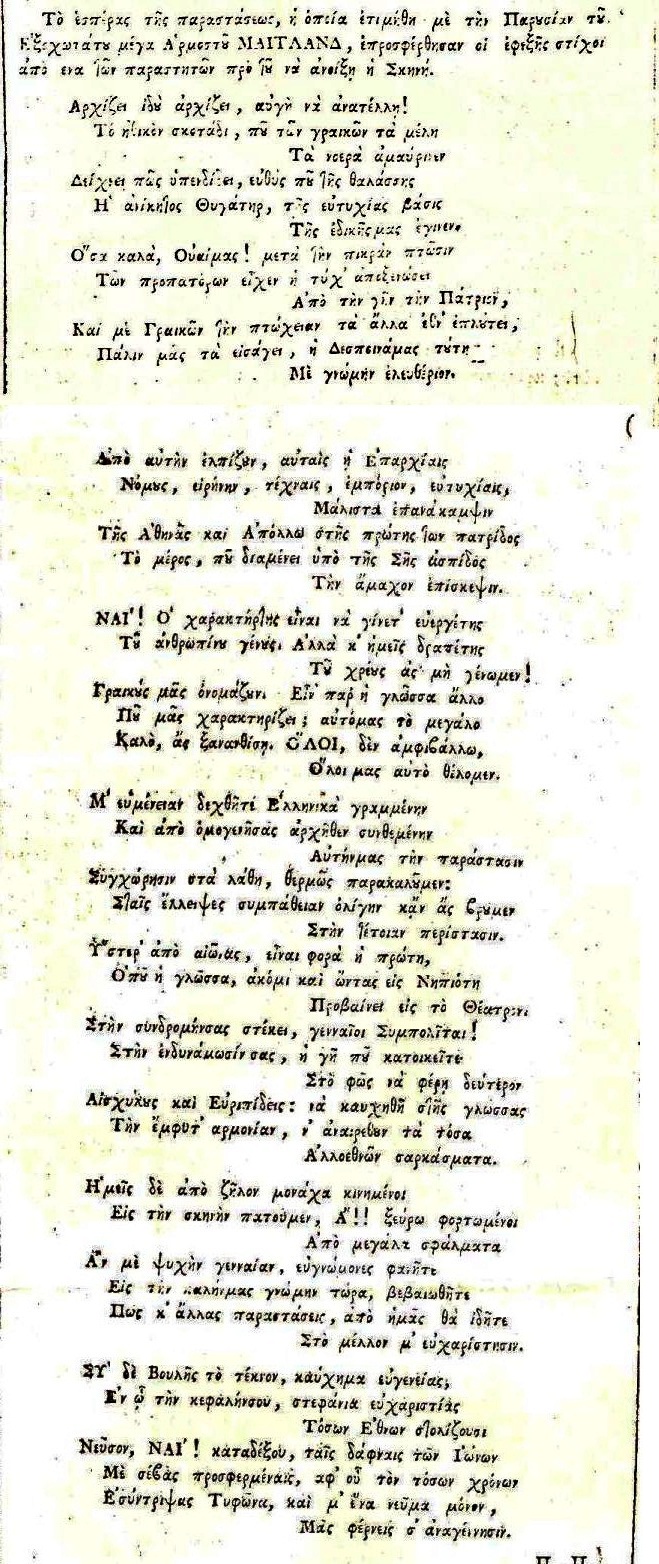 Τὸ ἑσπέρας τῆς παραστάσεως, ἡ ὁποία ἐτιμήθη μὲ τὴν Παρυσίαν τȣ͂
Ἐξοχωτάτȣ μέγα Ἁρμοστȣ͂ ΜΑΙΤΛΑΝΔ, ἐπροσφέρθησαν οἱ ἐφεξῆς στίχοι
ἀπὸ ἕνα τῶν παραστητῶν πρὸ τȣ͂ νὰ ἀνοίξῃ ἡ Σκηνή.
Ἀρχίζει ἰδȣ̀ ἀρχίζει, αὐγὴ νὰ ἀνατέλλῃ!
Τὸ ἠθικὸν σκοτάδι, πȣ͂ τῶν γραικῶν τὰ μέλη
Τὰ νοερὰ ἀμαύρωνεν
Δείχνει πῶς, εὐθὺς πȣ͂ τῆς θαλάσσης
Ἡ ἀνίκητος Θυγάτηρ, τῆς εὐτυχίας βάσις
Τῆς ἐδικῆς μας ἔγινεν.
Ὅσα καλὰ, Οὐαίμας! μετὰ τὴν πικρὰν πτῶσιν
Τῶν προπατόρων εἶχεν ἡ τύχ' ἀποξενώσει
Ἀπὸ τὴν γῆν τὴν Πάτριον,
Καὶ μὲ Γραικῶν τὴν πτώχειαν τὰ ἄλλα ἔθν' ἐπλύτει,
Πάλιν μᾶς τὰ εἰσάγει, ἡ Δεσποινάμας τύτη
Μὲ γνώμην ἐλευθέριον.
Ἀπὸ αὐτὴν ἐλπίζȣν, αὐταὶς ἡ Ἐπαρχίαις
Νόμȣς, εἰρήνην, τέχναις, ἐμπόριον, εὐτυχίαις,
Μάλιστα ἐπανάκαμψιν
Τῆς Ἀθηνᾶς καὶ Ἀπόλλω στῆς πρώτης των πατρίδος
Τὸ μέρος, πȣ͂ διαμένει ὑπὸ τῆς Σῆς ἀσπίδος
Τὴν ἄμαχον ἐπίσκεψιν.
ΝΑΙ'! Ὁ χαρακτήρτης εἶναι νὰ γίνετ' εὐεργέτης
Τȣ͂ ἀνθρωπίνȣ γένȣς. Ἀλλὰ κ' ἡμεῖς δραπέτης
Τȣ͂ χρέȣς ἂς μὴ γένωμεν!
Γραικȣ́ς μᾶς ὀνομάζȣν. Εἶν' παρ' ἡ γλῶσσα ἄλλο
Πȣ͂ μᾶς χαρακτηρίζει; αὐτόμας τὸ μεγάλο
Καλὸ, ἂς ξανανθίσῃ. ὍΛΟΙ, δὲν ἀμφιβάλλω,
Ὅλοι μας αὐτὸ θέλομεν.
Μ' εὐμένειαν δεχθῆτέ Ἑλληνικὰ γραμμένην
Καὶ ἀπὸ ὁμογενῆσας ἀρχῆθεν συνθεμένην
Αὐτήνμας τὴν παράστασιν
Συγχώρησιν στὰ λάθη, θερμῶς παρακαλȣ͂μεν:
Σταῖς ἔλλειψες συμπάθειαν ὀλίγην κᾂν ἂς βρȣ͂μεν
Στὴν τέτοιαν περίστασιν.
Ὕστερ' ἀπὸ αἰῶνας, εἶναι φορὰ ἡ πρώτη,
Ὁπȣ͂ ἡ γλῶσσα, ἀκόμι καὶ ὤντας εἰς Νηπιότη
Προβαίνει εἰς τὸ Θέατρον.
Στὴν συνδρομήνσας στέκει, γενναῖοι Συμπολῖται!
Στὴν ἐνδυνάμωσίν σας, ἡ γῆ πȣ͂ κατοικεῖτε
Στὸ φῶς νὰ φέρῃ δεύτερον
Αἰσχύλȣς καὶ Εὐριπίδεις: νὰ καυχηθῇ στῆς γλώσσας
Τὴν ἔμφυτ' ἁρμονίαν, ν' ἀναιρεθȣ͂ν τὰ τόσα
Ἀλλοεθνῶν σαρκάσματα.
Ἡμεῖς δὲ ἀπὸ ζῆλον μονάχα κινημένοι
Εἰς τὴν σκηνὴν πατȣ͂μεν, Ἄ!! ξεύρω φορτωμένοι
Ἀπὸ μεγάλα σφάλματα
Ἂν μὲ ψυχὴν γενναίαν, εὐγνώμονες φανῆτε
Εἰς τὴν καλήνμας γνώμην τώρα, βεβαιωθῆτε
Πῶς κ' ἄλλας παραστάσεις, ἀπὸ ἡμᾶς θὰ ἰδῆτε
Στὸ μέλλον μ' εὐχαρίστησιν.
ΣΥ' δὲ Βουλῆς τὸ τέκνον, καύχημα εὐγενείας,
Ἐν ᾧ τὴν κεφαλήνσου, στεφάνια εὐχαριστίας
Τόσων Ἐθνων στολίζουσι
Νεῦσον, ΝΑΙ'! καταδέξου, ταῖς δάφναις τῶν Ἰώνων
Μὲ σέβας προσφερμέναις, ἀφ' οὗ τὸν τόσων χρόνων
Ἐσύντριψας Τυφῶνα, καὶ μ' ἕνα νεῦμα μόνον,
Μᾶς φέρνεις σ' ἀναγέννησιν.
Π. Π.